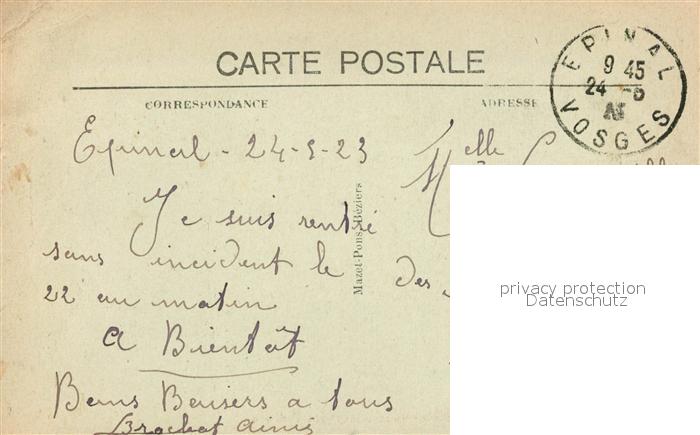 CARTE POSTALE
CORRESPONDANCE
ADRESSE
EPINAL
9 45
24 -5
VOSGES
Epinal - 24-5-23
Je suis rentré
sans incident le
22 au matin
A Bientôt
Bons Baisers a tous
Melle
des
Mazet-Pons, Béziers
privacy protection
Datenschutz